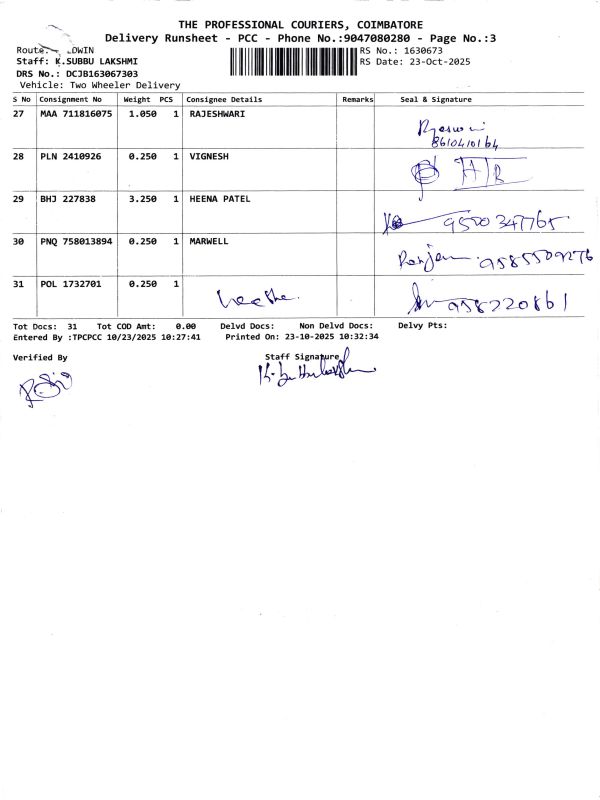 THE PROFESSIONAL COURIERS, COIMBATORE
Delivery Runsheet - PCC - Phone No.:9047080280 - Page No.:3
Route: DWIN
RS No.: 1630673
Staff: K.SUBBU LAKSHMI
RS Date: 23-Oct-2025
DRS No.: DCJB163067303
Vehicle: Two Wheeler Delivery
S No Consignment No Weight PCS Consignee Details Remarks Seal & Signature
27 MAA 711816075 1.050 1 RAJESHWARI
8610410164
28 PLN 2410926 0.250 1 VIGNESH
29 BHJ 227838 3.250 1 HEENA PATEL
9500347765
30 PNQ 758013894 0.250 1 MARWELL
9585509276
31 POL 1732701 0.250 1
958220861
Tot Docs: 31 Tot COD Amt: 0.00 Delvd Docs: Non Delvd Docs: Delvy Pts:
Entered By :TPCPCC 10/23/2025 10:27:41 Printed On: 23-10-2025 10:32:34
Verified By Staff Signature